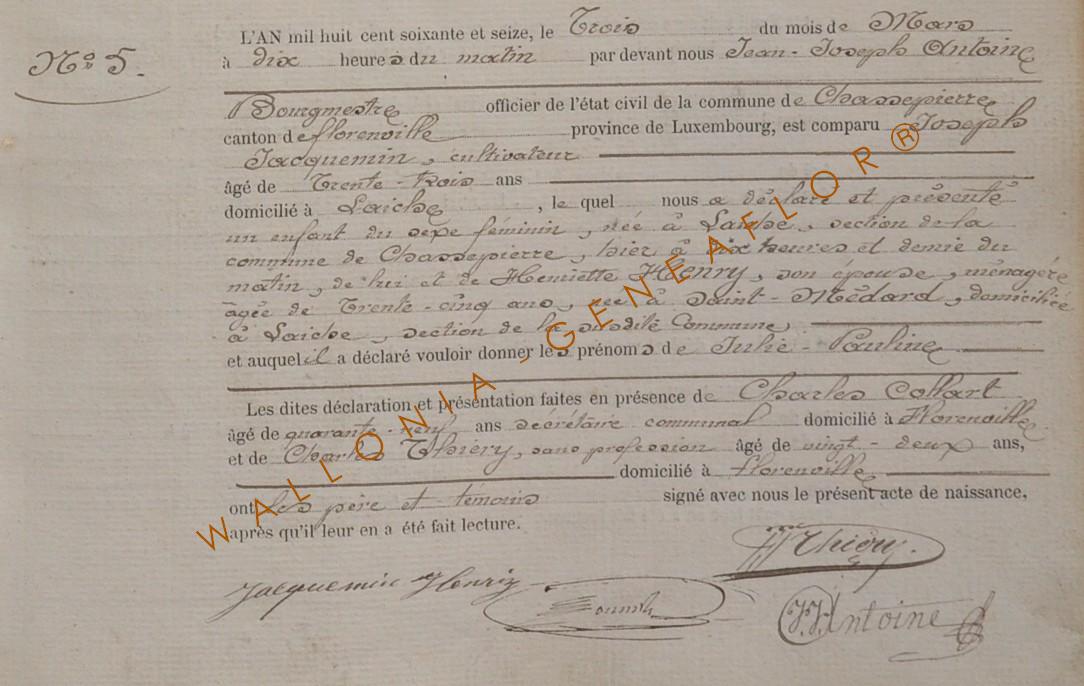 N° 5.
L'AN mil huit cent soixante et seize, le Trois du mois de Mars
à dix heures du matin par devant nous Jean-Joseph Antoine
Bourgmestre officier de l'état civil de la commune de Chassepierre
canton de florenville province de Luxembourg, est comparu Joseph
Jacquemin, cultivateur
âgé de Trente-trois ans
domicilié à Laiche, le quel nous a déclaré et présenté
un enfant du sexe féminin, née à Laiche, section de la
commune de Chassepierre, hier à dix heures et demie du
matin, de lui et de Henriette Henry, son épouse, ménagère
âgée de Trente-cinq ans, née à Saint-Médard, domiciliée
à Laiche, section de la susdite Commune,
et auquel il a déclaré vouloir donner les prénoms de Julie-Pauline
Les dites déclaration et présentation faites en présence de Charles Collart
âgé de quarante-neuf ans secrétaire communal domicilié à Florenville
et de Charles Thiéry, sans profession âgé de vingt-deux ans,
domicilié à florenville,
ont les père et témoins signé avec nous le présent acte de naissance,
après qu'il leur en a été fait lecture.
Thiéry.
Jacquemin Henry
J.J. Antoine
WALLONIA-GENEAFLOR®